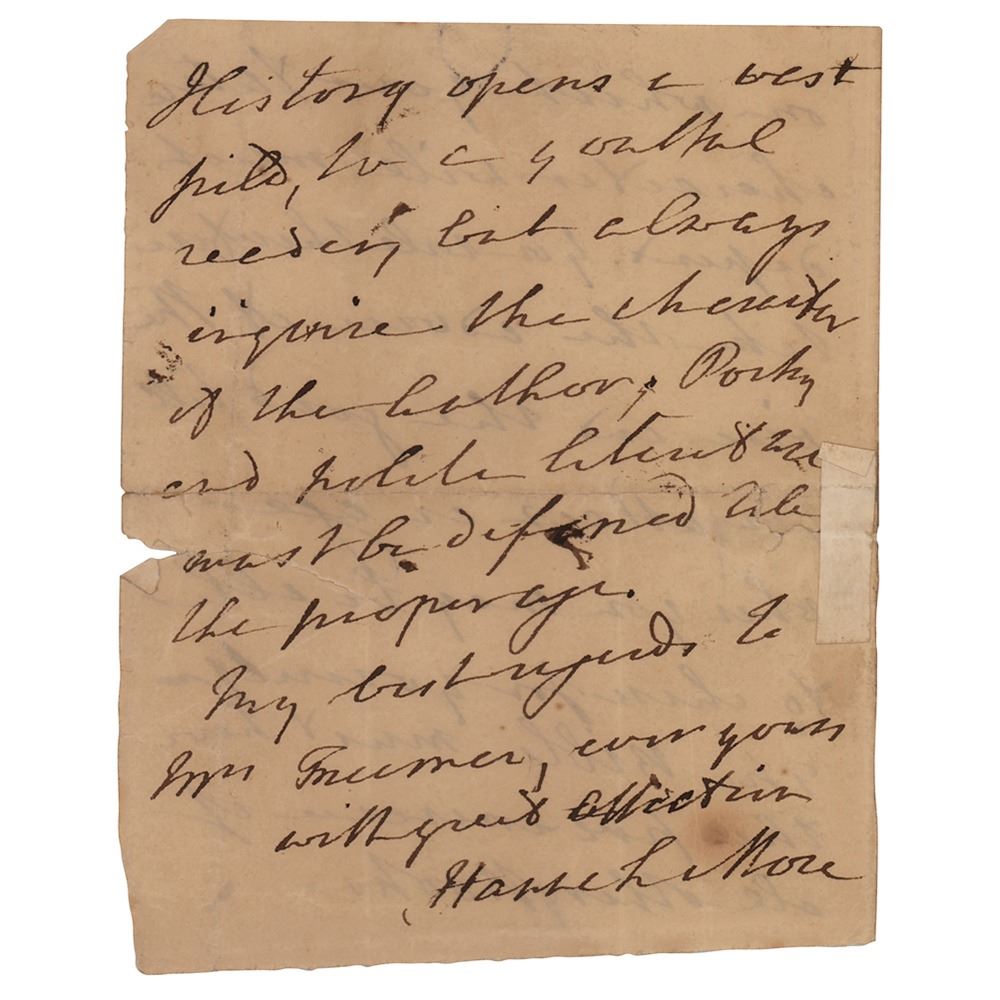 History opens a vast
field, to a youthful
reader, but always
inquire the character
of the author, Poetry
and polite literature
must be deferred till
the proper age.
My best regards to
Mrs Freeman, ever yours
with great affection
Hannah More